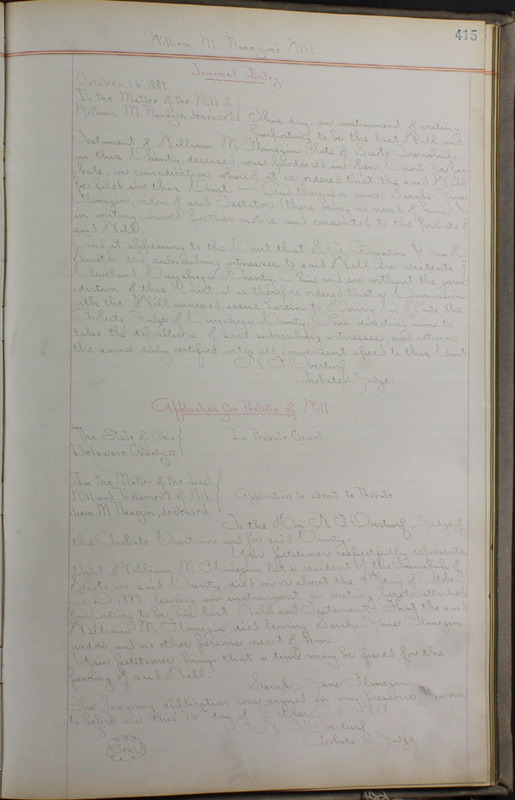 415
William M. Flanegin's Will
Journal Entry
October 15 1889.
In the Matter of the Will of
William M. Flanegin, deceased
This day an instrument of writing
purporting to be the last Will and
Testament of William M. Flanegin late of Scioto Township,
in this County, deceased, was produced in open Court for Pro-
bate, on consideration whereof, it is ordered that the said Will
be filed in this Court. And thereupon came Sarah Jane
Flanegin, widow of said Testator (there being no next of kin) &
in writing waived further notice and consented to the probate of
said Will.
And it appearing to the Court that S. A. Boynton &
Smith the subscribing witnesses to said Will, are residents of
Cleveland Cuyahoga County, Ohio and are without the juris-
diction of this Court, it is therefore ordered that a Commission
with the Will annexed, issue herein to Henry C. White the
Probate Judge of Cuyahoga County, Ohio, directing him to
take the depositions of said subscribing witnesses, and return
the same, duly certified, with all convenient speed to this Court
N. F. Overturf
Probate Judge.
Application for Probate of Will
The State of Ohio
Delaware County ss
In Probate Court.
In the Matter of the Last
Will and Testament of Wil-
liam M. Flanegin, deceased.
Application to admit to Probate
To the Hon. N. F. Overturf Judge of
the Probate Court in and for said County.
Your Petitioner respectfully represents
that William M. Flanegin late a resident of the Township of
Scioto in said County, died on or about the day of October
A. D. 1889, leaving an instrument in writing, hereto attached
purporting to be his last Will and Testament. That the said
William M. Flanegin died leaving Sarah Jane Flanegin
widow and no other persons next of kin.
Your Petitioner prays that a time may be fixed for the
proving of said Will.
Sarah Jane Flanegin
The foregoing application was signed in my presence & sworn
to before me this 15 day of October 1889
N. F. Overturf
Probate Judge
Seal